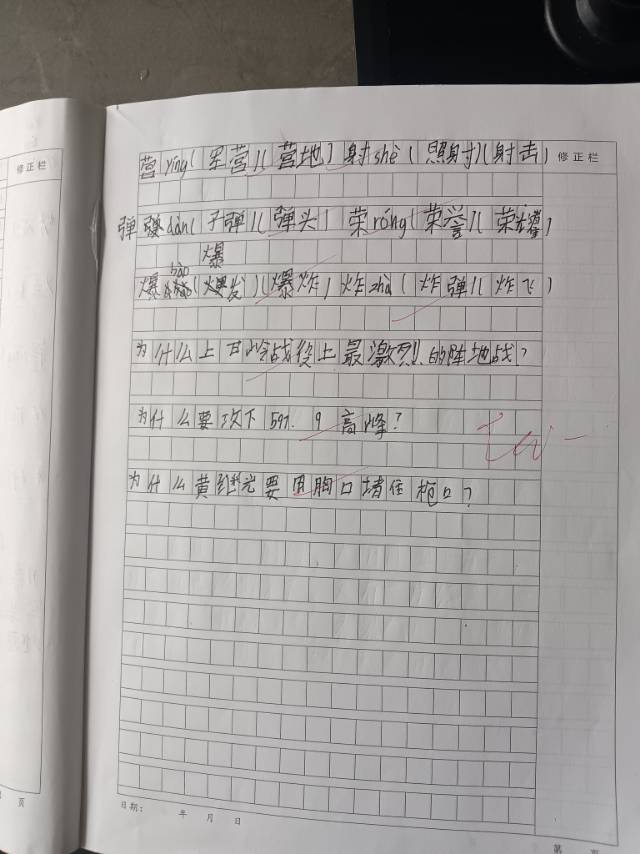 修正栏
修正栏
营 yíng(军营)(营地) 射 shè(照射)(射击)
弹 dàn(子弹)(弹头) 荣 róng(荣誉)(荣耀)
爆
爆 bào(爆发)(爆炸) 炸 zhà(炸弹)(炸飞)
为什么上甘岭战役上最激烈的阵地战?
为什么要攻下597.9高峰?
为什么黄继光要用胸口堵住枪口?
日期: 年 月 日
第 页
页